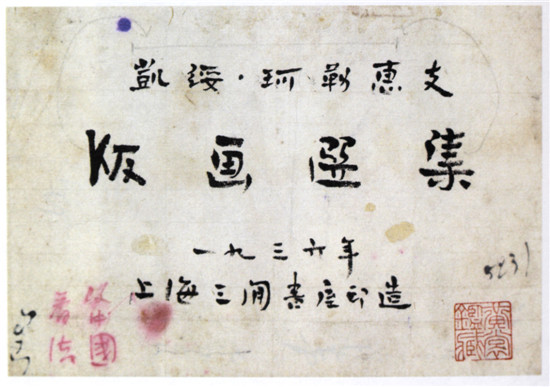 凱綏·珂勒惠支
版画選集
一九三六年
上海三閒書屋印造